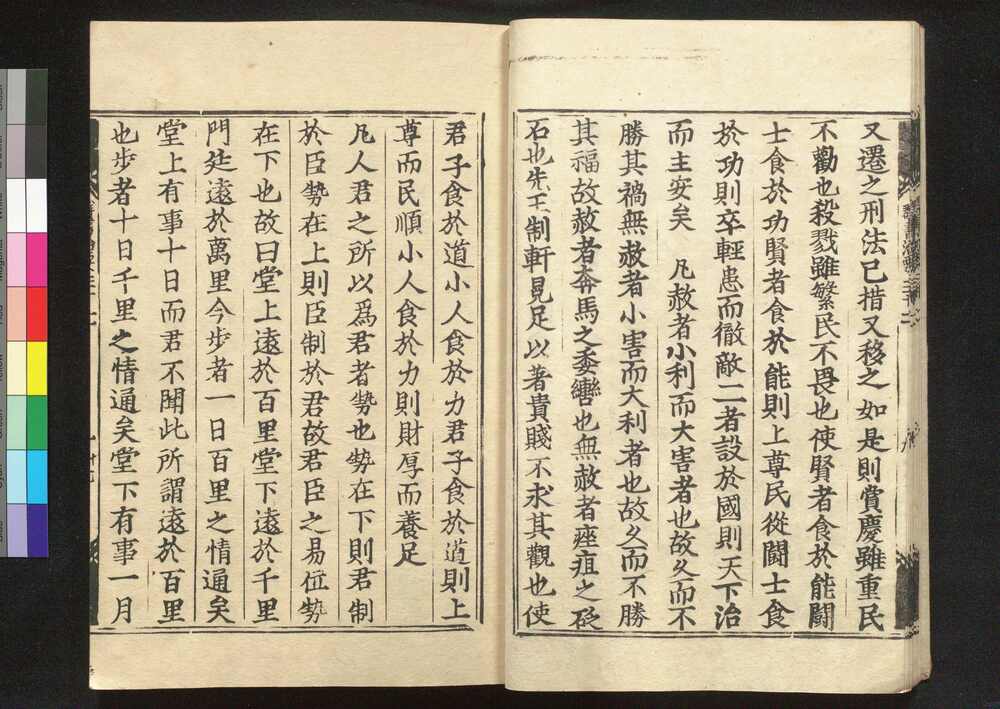 又遷之刑法已措又移之如是則賞慶雖重民
不勸也殺戮雖繁民不畏也使賢者食於能闘
士食於功賢者食於能則上尊民從闘士食
於功則卒輕患而徹敵二者設於國則天下治
而主安矣　凡赦者小利而大害者也故久而不
勝其禍無赦者小害而大利者也故久而不勝
其福故赦者奔馬之委轡也無赦者痤疽之砭
石也先王制軒冕足以著貴賤不求其觀也使
君子食於道小人食於力君子食於道則上
尊而民順小人食於力則財厚而養足
凡人君之所以爲君者勢也勢在下則君制
於臣勢在上則臣制於君故君臣之易位勢
在下也故曰堂上遠於百里堂下遠於千里
門廷遠於萬里今步者一日百里之情通矣
堂上有事十日而君不聞此所謂遠於百里
也步者十日千里之情通矣堂下有事一月